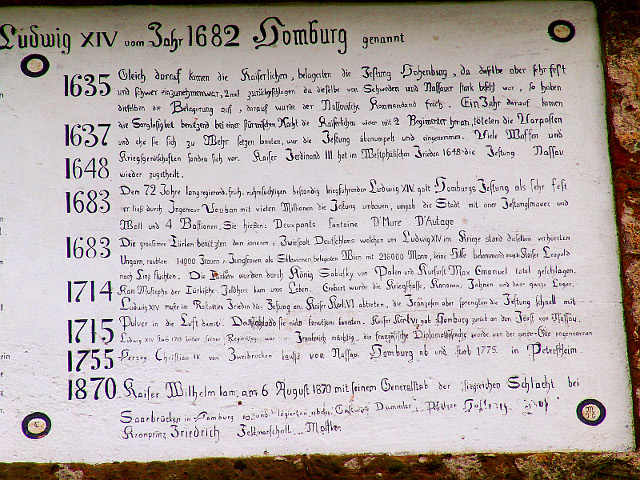 Ludwig XIV vom Jahr 1682 Homburg genannt
1635 Gleich darauf kamen die Kaiserlichen, belagerten die Festung Hohenburg, da dieselbe aber sehr fest
und schwer einzunehmen war, 2 mal zurückschlagen da dieselbe von Schweden und Nassauer stark besetzt war, so haben
dieselben die Belagerung auf, darauf wurde der Nassauische Kommandant frech. Ein Jahr darauf kamen
1637 die Sorglosigkeit benützend bei einer stürmischen Nacht die Kaiserlichen wieder mit 2 Regimenter heran, töteten die Vorposten
und ehe sie sich zu Wehr setzen konten, war die Festung überrumpelt und eingenommen. Viele Waffen und
1648 Kriegsgerätschaften fanden sich vor. Kaiser Ferdinand III hat im Westphälischen Frieden 1648 die Festung Nassau
wieder zugeteilt.
1683 Dem 72 Jahre lang regierend, ruhmsüchtigen beständig kriegführenden Ludwig XIV. galt Homburgs Festung als sehr fest
er ließ durch Ingenieur Vauban mit vielen Millionen die Festung umbauen, umgab die Stadt mit einer Festungsmauer und
Wall und 4 Bastionen, Sie hießen: Deuxponts Fontaine D'Mure D'Autage
1683 Die grausamen Türken benützten den inneren Zwiespalt Deutschlands welcher mit Ludwig XIV im Kriege stand dieselben verheerten
Ungarn, raubten 14000 Frauen, Jungfrauen als Sklavinnen, belagerten Wien mit 216000 Mann, keine Hilfe bekommend mußte Kaiser Leopold
nach Linz flüchten. Die Türken wurden durch König Sobiesky von Polen und Kurfürst Max Emanuel total geschlagen.
1714 Kan Mustapha der Türkische Feldherr kam ums Leben. Erobert wurde die Kriegskasse, Kanonen, Fahnen und das ganze Lager.
Ludwig XIV mußte im Rastatter Frieden die Festung an Kaiser Karl VI abtreten, die Franzosen aber sprengten die Festung schnell mit
1715 Pulver in die Luft damit Deutschland sie nicht benutzen konnten. Kaiser Karl VI gab Homburg zurück an den Fürst von Nassau.
Ludwig XIV starb 1715 unter seiner Regierung war Frankreich mächtig, die französische Diplomatensprache wurde von der ganzen angenommen
1755 Herzog Christian IV. von Zweibrücken kaufte von Nassau Homburg ab und starb 1775. in Petersheim.
1870 Kaiser Wilhelm kam am 6 August 1870 mit seinem Generalstab der siegreichen Schlacht bei
Saarbrücken in Homburg Gasthaus Dammler, Post
Kronprinz Friedrich Feldmarschall Moltke.